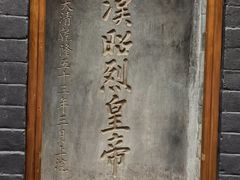 漢昭烈皇帝
大清乾隆五十三年二月